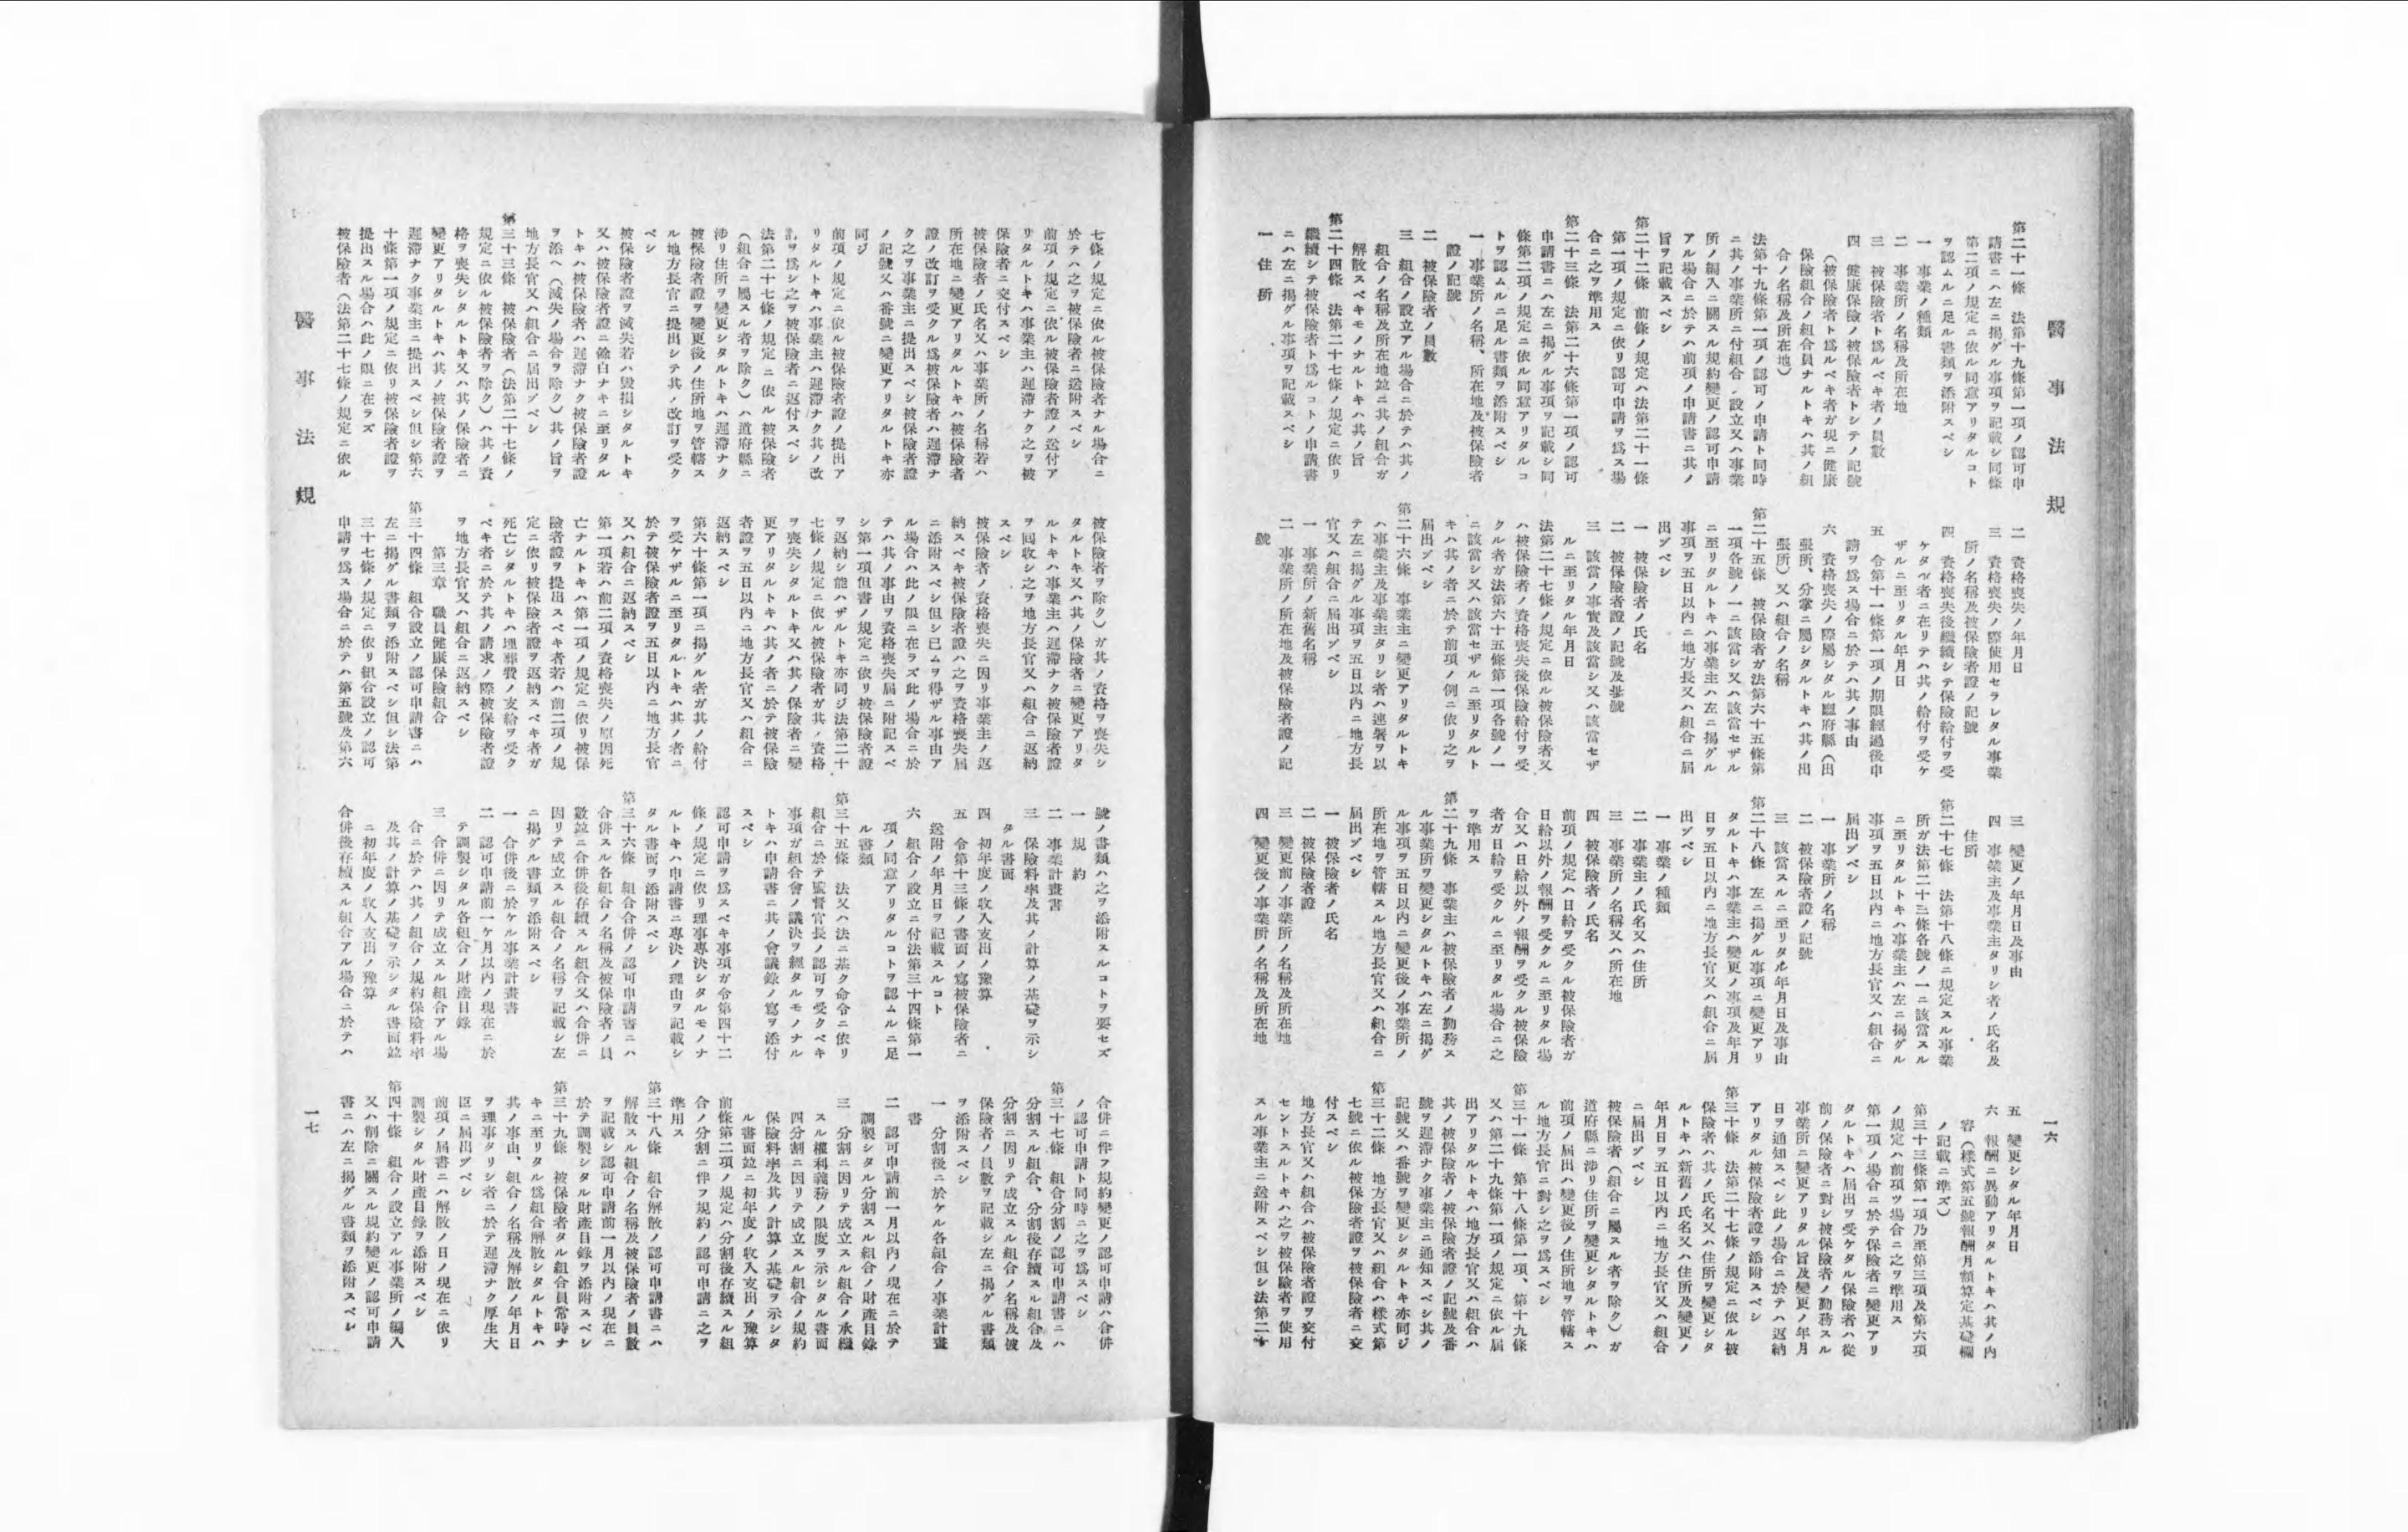 醫事法規
一六
第二十一條 法第十九條第一項ノ認可申
請書ニハ左ニ揭グル事項ヲ記載シ同條
第二項ノ規定ニ依ル同意アリタルコト
ヲ認ムルニ足ル書類ヲ添附スベシ
一 事業ノ種類
二 事業所ノ名稱及所在地
三 被保險者ト爲ルベキ者ノ員數
四 健康保險ノ被保險者トシテノ記號
(被保險者ト爲ルベキ者ガ現ニ健康
保險組合ノ組合員ナルトキハ其ノ組
合ノ名稱及所在地)
法第十九條第一項ノ認可ノ申請ト同時
ニ其ノ事業所ニ付組合ノ設立又ハ事業
所ノ編入ニ關スル規約變更ノ認可申請
アル場合ニ於テハ前項ノ申請書ニ其ノ
旨ヲ記載スベシ
第二十二條 前條ノ規定ハ法第二十一條
第一項ノ規定ニ依リ認可申請ヲ爲ス場
合ニ之ヲ準用ス
第二十三條 法第二十六條第一項ノ認可
申請書ニハ左ニ揭グル事項ヲ記載シ同
條第二項ノ規定ニ依ル同意アリタルコ
トヲ認ムルニ足ル書類ヲ添附スベシ
一 事業所ノ名稱、所在地及被保險者
證ノ記號
二 被保險者ノ員數
三 組合ノ設立アル場合ニ於テハ其ノ
組合ノ名稱及所在地竝ニ其ノ組合ガ
解散スベキモノナルトキハ其ノ旨
第二十四條 法第二十七條ノ規定ニ依リ
繼續シテ被保險者ト爲ルコトノ申請書
ニハ左ニ揭グル事項ヲ記載スベシ
一 住所
二 資格喪失ノ年月日
三 資格喪失ノ際使用セラレタル事業
所ノ名稱及被保險者證ノ記號
四 資格喪失後繼續シテ保險給付ヲ受
ケタル者ニ在リテハ其ノ給付ヲ受ケ
ザルニ至リタル年月日
五 令第十一條第一項ノ期限經過後申
請ヲ爲ス場合ニ於テハ其ノ事由
六 資格喪失ノ際屬シタル廳府縣(出
張所、分掌ニ屬シタルトキハ其ノ出
張所)又ハ組合ノ名稱
第二十五條 被保險者ガ法第六十五條第
一項各號ノ一ニ該當シ又ハ該當セザル
ニ至リタルトキハ事業主ハ左ニ揭グル
事項ヲ五日以內ニ地方長又ハ組合ニ屆
出ヅベシ
一 被保險者ノ氏名
二 被保險者證ノ記號及番號
三 該當ノ事實及該當シ又ハ該當セザ
ルニ至リタル年月日
法第二十七條ノ規定ニ依ル被保險者又
ハ被保險者ノ資格喪失後保險給付ヲ受
クル者ガ法第六十五條第一項各號ノ一
ニ該當シ又ハ該當セザルニ至リタルト
キハ其ノ者ニ於テ前項ノ例ニ依リ之ヲ
屆出ヅベシ
第二十六條 事業主ニ變更アリタルトキ
ハ事業主及事業主タリシ者ハ連署ヲ以
テ左ニ揭グル事項ヲ五日以內ニ地方長
官又ハ組合ニ屆出ヅベシ
一 事業所ノ新舊名稱
二 事業所ノ所在地及被保險者證ノ記
號
三 變更ノ年月日及事由
四 事業主及事業主タリシ者ノ氏名及
住所
第二十七條 法第十八條ニ規定スル事業
所ガ法第二十三條各號ノ一ニ該當スル
ニ至リタルトキハ事業主ハ左ニ揭グル
事項ヲ五日以內ニ地方長官又ハ組合ニ
屆出ヅベシ
一 事業所ノ名稱
二 被保險者證ノ記號
三 該當スルニ至リタル年月日及事由
第二十八條 左ニ揭グル事項ニ變更アリ
タルトキハ事業主ハ變更ノ事項及年月
日ヲ五日以內ニ地方長官又ハ組合ニ屆
出ヅベシ
一 事業ノ種類
二 事業主ノ氏名又ハ住所
三 事業所ノ名稱又ハ所在地
四 被保險者ノ氏名
前項ノ規定ハ日給ヲ受クル被保險者ガ
日給以外ノ報酬ヲ受クルニ至リタル場
合又ハ日給以外ノ報酬ヲ受クル被保險
者ガ日給ヲ受クルニ至リタル場合ニ之
ヲ準用ス
第二十九條 事業主ハ被保險者ノ勤務ス
ル事業所ヲ變更シタルトキハ左ニ揭グ
ル事項ヲ五日以內ニ變更後ノ事業所ノ
所在地ヲ管轄スル地方長官又ハ組合ニ
屆出ヅベシ
一 被保險者ノ氏名
二 被保險者證
三 變更前ノ事業所ノ名稱及所在地
四 變更後ノ事業所ノ名稱及所在地
五 變更シタル年月日
六 報酬ニ異動アリタルトキハ其ノ內
容(樣式第五號報酬月額算定基礎欄
ノ記載ニ準ズ)
第三十三條第一項乃至第三項及第六項
ノ規定ハ前項ツ場合ニ之ヲ準用ス
第一項ノ場合ニ於テ保險者ニ變更アリ
タルトキハ屆出ヲ受ケタル保險者ハ從
前ノ保險者ニ對シ被保險者ノ勤務スル
事業所ニ變更アリタル旨及變更ノ年月
日ヲ通知スベシ此ノ場合ニ於テハ返納
アリタル被保險者證ヲ添附スベシ
第三十條 法第二十七條ノ規定ニ依ル被
保險者ハ其ノ氏名又ハ住所ヲ變更シタ
ルトキハ新舊ノ氏名又ハ住所及變更ノ
年月日ヲ五日以內ニ地方長官又ハ組合
ニ屆出ヅベシ
被保險者(組合ニ屬スル者ヲ除ク)ガ
道府縣ニ涉リ住所ヲ變更シタルトキハ
前項ノ屆出ハ變更後ノ住所地ヲ管轄ス
ル地方長官ニ對シ之ヲ爲スベシ
第三十一條 第十八條第一項、第十九條
又ハ第二十九條第一項ノ規定ニ依ル屆
出アリタルトキハ地方長官又ハ組合ハ
其ノ被保險者ノ被保險者證ノ記號及番
號ヲ遲滯ナク事業主ニ通知スベシ其ノ
記號又ハ番號ヲ變更シタルトキ亦同ジ
第三十二條 地方長官又ハ組合ハ樣式第
七號ニ依ル被保險者證ヲ被保險者ニ交
付スベシ
地方長官又ハ組合ハ被保險者證ヲ交付
セントスルトキハ之ヲ被保險者ヲ使用
スル事業主ニ送附スベシ但シ法第二十
七條ノ規定ニ依ル被保險者ナル場合ニ
於テハ之ヲ被保險者ニ送附スベシ
前項ノ規定ニ依ル被保險者證ノ送付ア
リタルトキハ事業主ハ遲滯ナク之ヲ被
保險者ニ交付スベシ
被保險者ノ氏名又ハ事業所ノ名稱若ハ
所在地ニ變更アリタルトキハ被保險者
證ノ改訂ヲ受クル爲被保險者ハ遲滯ナ
ク之ヲ事業主ニ提出スベシ被保險者證
ノ記號又ハ番號ニ變更アリタルトキ亦
同ジ
前項ノ規定ニ依ル被保險者證ノ提出ア
リタルトキハ事業主ハ遲滯ナク其ノ改
訂ヲ爲シ之ヲ被保險者ニ返付スベシ
法第二十七條ノ規定ニ依ル被保險者
(組合ニ屬スル者ヲ除ク)ハ道府縣ニ
涉リ住所ヲ變更シタルトキハ遲滯ナク
被保險者證ヲ變更後ノ住所地ヲ管轄ス
ル地方長官ニ提出シテ其ノ改訂ヲ受ク
ベシ
被保險者證ヲ滅失若ハ毀損シタルトキ
又ハ被保險者證ニ餘白ナキニ至リタル
トキハ被保險者ハ遲滯ナク被保險者證
ヲ添ヘ(滅失ノ場合ヲ除ク)其ノ旨ヲ
地方長官又ハ組合ニ屆出ヅベシ
第三十三條 被保險者(法第二十七條ノ
規定ニ依ル被保險者ヲ除ク)ハ其ノ資
格ヲ喪失シタルトキ又ハ其ノ保險者ニ
變更アリタルトキハ其ノ被保險者證ヲ
遲滯ナク事業主ニ提出スベシ但シ第六
十條第一項ノ規定ニ依リ被保險者證ヲ
提出スル場合ハ此ノ限ニ在ラズ
被保險者(法第二十七條ノ規定ニ依ル
被保險者ヲ除ク)ガ其ノ資格ヲ喪失シ
タルトキ又ハ其ノ保險者ニ變更アリタ
ルトキハ事業主ハ遲滯ナク被保險者證
ヲ回收シ之ヲ地方長官又ハ組合ニ返納
スベシ
被保險者ノ資格喪失ニ因リ事業主ノ返
納スベキ被保險者證ハ之ヲ資格喪失屆
ニ添附スベシ但シ已ムヲ得ザル事由ア
ル場合ハ此ノ限ニ在ラズ此ノ場合ニ於
テハ其ノ事由ヲ資格喪失屆ニ附記スベ
シ第一項但書ノ規定ニ依リ被保險者證
ヲ返納シ能ハザルトキ亦同ジ法第二十
七條ノ規定ニ依ル被保險者ガ其ノ資格
ヲ喪失シタルトキ又ハ其ノ保險者ニ變
更アリタルトキハ其ノ者ニ於テ被保險
者證ヲ五日以內ニ地方長官又ハ組合ニ
返納スベシ
第六十條第一項ニ揭グル者ガ其ノ給付
ヲ受ケザルニ至リタルトキハ其ノ者ニ
於テ被保險者證ヲ五日以內ニ地方長官
又ハ組合ニ返納スベシ
第一項若ハ前二項ノ資格喪失ノ原因死
亡ナルトキハ第一項ノ規定ニ依リ被保
險者證ヲ提出スベキ者若ハ前二項ノ規
定ニ依リ被保險者證ヲ返納スベキ者ガ
死亡シタルトキハ埋葬費ノ支給ヲ受ク
ベキ者ニ於テ其ノ請求ノ際被保險者證
ヲ地方長官又ハ組合ニ返納スベシ
第三章 職員健康保險組合
第三十四條 組合設立ノ認可申請書ニハ
左ニ揭グル書類ヲ添附スベシ但シ法第
三十七條ノ規定ニ依リ組合設立ノ認可
申請ヲ爲ス場合ニ於テハ第五號及第六
號ノ書類ハ之ヲ添附スルコトヲ要セズ
一 規約
二 事業計畫書
三 保險料率及其ノ計算ノ基礎ヲ示シ
タル書面
四 初年度ノ收入支出ノ豫算
五 令第十三條ノ書面ノ寫被保險者ニ
送附ノ年月日ヲ記載スルコト
六 組合ノ設立ニ付法第三十四條第一
項ノ同意アリタルコトヲ認ムルニ足
ル書類
第三十五條 法又ハ法ニ基ク命令ニ依リ
組合ニ於テ監督官長ノ認可ヲ受クベキ
事項ガ組合會ノ議決ヲ經タルモノナル
トキハ申請書ニ其ノ會議錄ノ寫ヲ添付
スベシ
認可申請ヲ爲スベキ事項ガ令第四十二
條ノ規定ニ依リ理事專決シタルモノナ
ルトキハ申請書ニ專決ノ理由ヲ記載シ
タル書面ヲ添附スベシ
第三十六條 組合合併ノ認可申請書ニハ
合併スル各組合ノ名稱及被保險者ノ員
數竝ニ合併後存續スル組合又ハ合併ニ
因リテ成立スル組合ノ名稱ヲ記載シ左
ニ揭グル書類ヲ添附スベシ
一 合併後ニ於ケル事業計畫書
二 認可申請前一ケ月以內ノ現在ニ於
テ調製シタル各組合ノ財產目錄
三 合併ニ因リテ成立スル組合アル場
合ニ於テハ其ノ組合ノ規約保險料率
及其ノ計算ノ基礎ヲ示シタル書面竝
ニ初年度ノ收入支出ノ豫算
合併後存續スル組合アル場合ニ於テハ
合併ニ伴フ規約變更ノ認可申請ハ合併
ノ認可申請ト同時ニ之ヲ爲スベシ
第三十七條 組合分割ノ認可申請書ニハ
分割スル組合、分割後存續スル組合及
分割ニ因リテ成立スル組合ノ名稱及被
保險者ノ員數ヲ記載シ左ニ揭グル書類
ヲ添附スベシ
一 分割後ニ於ケル各組合ノ事業計畫
書
二 認可申請前一月以內ノ現在ニ於テ
調製シタル分割スル組合ノ財產目錄
三 分割ニ因リテ成立スル組合ノ承繼
スル權利義務ノ限度ヲ示シタル書面
四分割ニ因リテ成立スル組合ノ規約
保險料率及其ノ計算ノ基礎ヲ示シタ
ル書面竝ニ初年度ノ收入支出ノ豫算
前條第二項ノ規定ハ分割後存續スル組
合ノ分割ニ伴フ規約ノ認可申請ニ之ヲ
準用ス
第三十八條 組合解散ノ認可申請書ニハ
解散スル組合ノ名稱及被保險者ノ員數
ヲ記載シ認可申請前一月以內ノ現在ニ
於テ調製シタル財產目錄ヲ添附スベシ
第三十九條 被保險者タル組合員常時ナ
キニ至リタル爲組合解散シタルトキハ
其ノ事由、組合ノ名稱及解散ノ年月日
ヲ理事タリシ者ニ於テ遲滯ナク厚生大
臣ニ屆出ヅベシ
前項ノ屆書ニハ解散ノ日ノ現在ニ依リ
調製シタル財產目錄ヲ添附スベシ
第四十條 組合ノ設立アル事業所ノ編入
又ハ削除ニ關スル規約變更ノ認可申請
書ニハ左ニ揭グル書類ヲ添附スベシ
醫事法規
一七